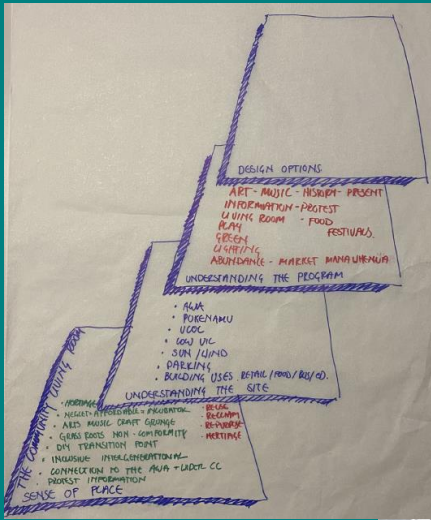 DESIGN OPTIONS
ART - MUSIC - HISTORY - PRESENT
INFORMATION - PROTEST
LIVING ROOM - FOOD
PLAY FESTIVALS.
GREEN
LIGHTING
ABUNDANCE - MARKET MANAWHENUA
UNDERSTANDING THE PROGRAM
• AWA
• POKENAMU
• UCOL
• LOW VIC
• SUN / WIND
• PARKING
• BUILDING USES RETAIL / FOOD / BUS / ED.
UNDERSTANDING THE SITE
THE COMMUNITY LIVING ROOM
• HERITAGE
• NEGLECT = AFFORDABLE = INCUBATOR
• ARTS MUSIC CRAFT GRUNGE
• GRASS ROOTS NON-COMFORMITY
• DIY TRANSITION POINT
• INCLUSIVE INTERGENERATIONAL
• CONNECTION TO THE AWA + WIDER CC
PROTEST INFORMATION
- REUSE
- RECLAIM
- REPURPOSE
- HERITAGE
SENSE OF PLACE